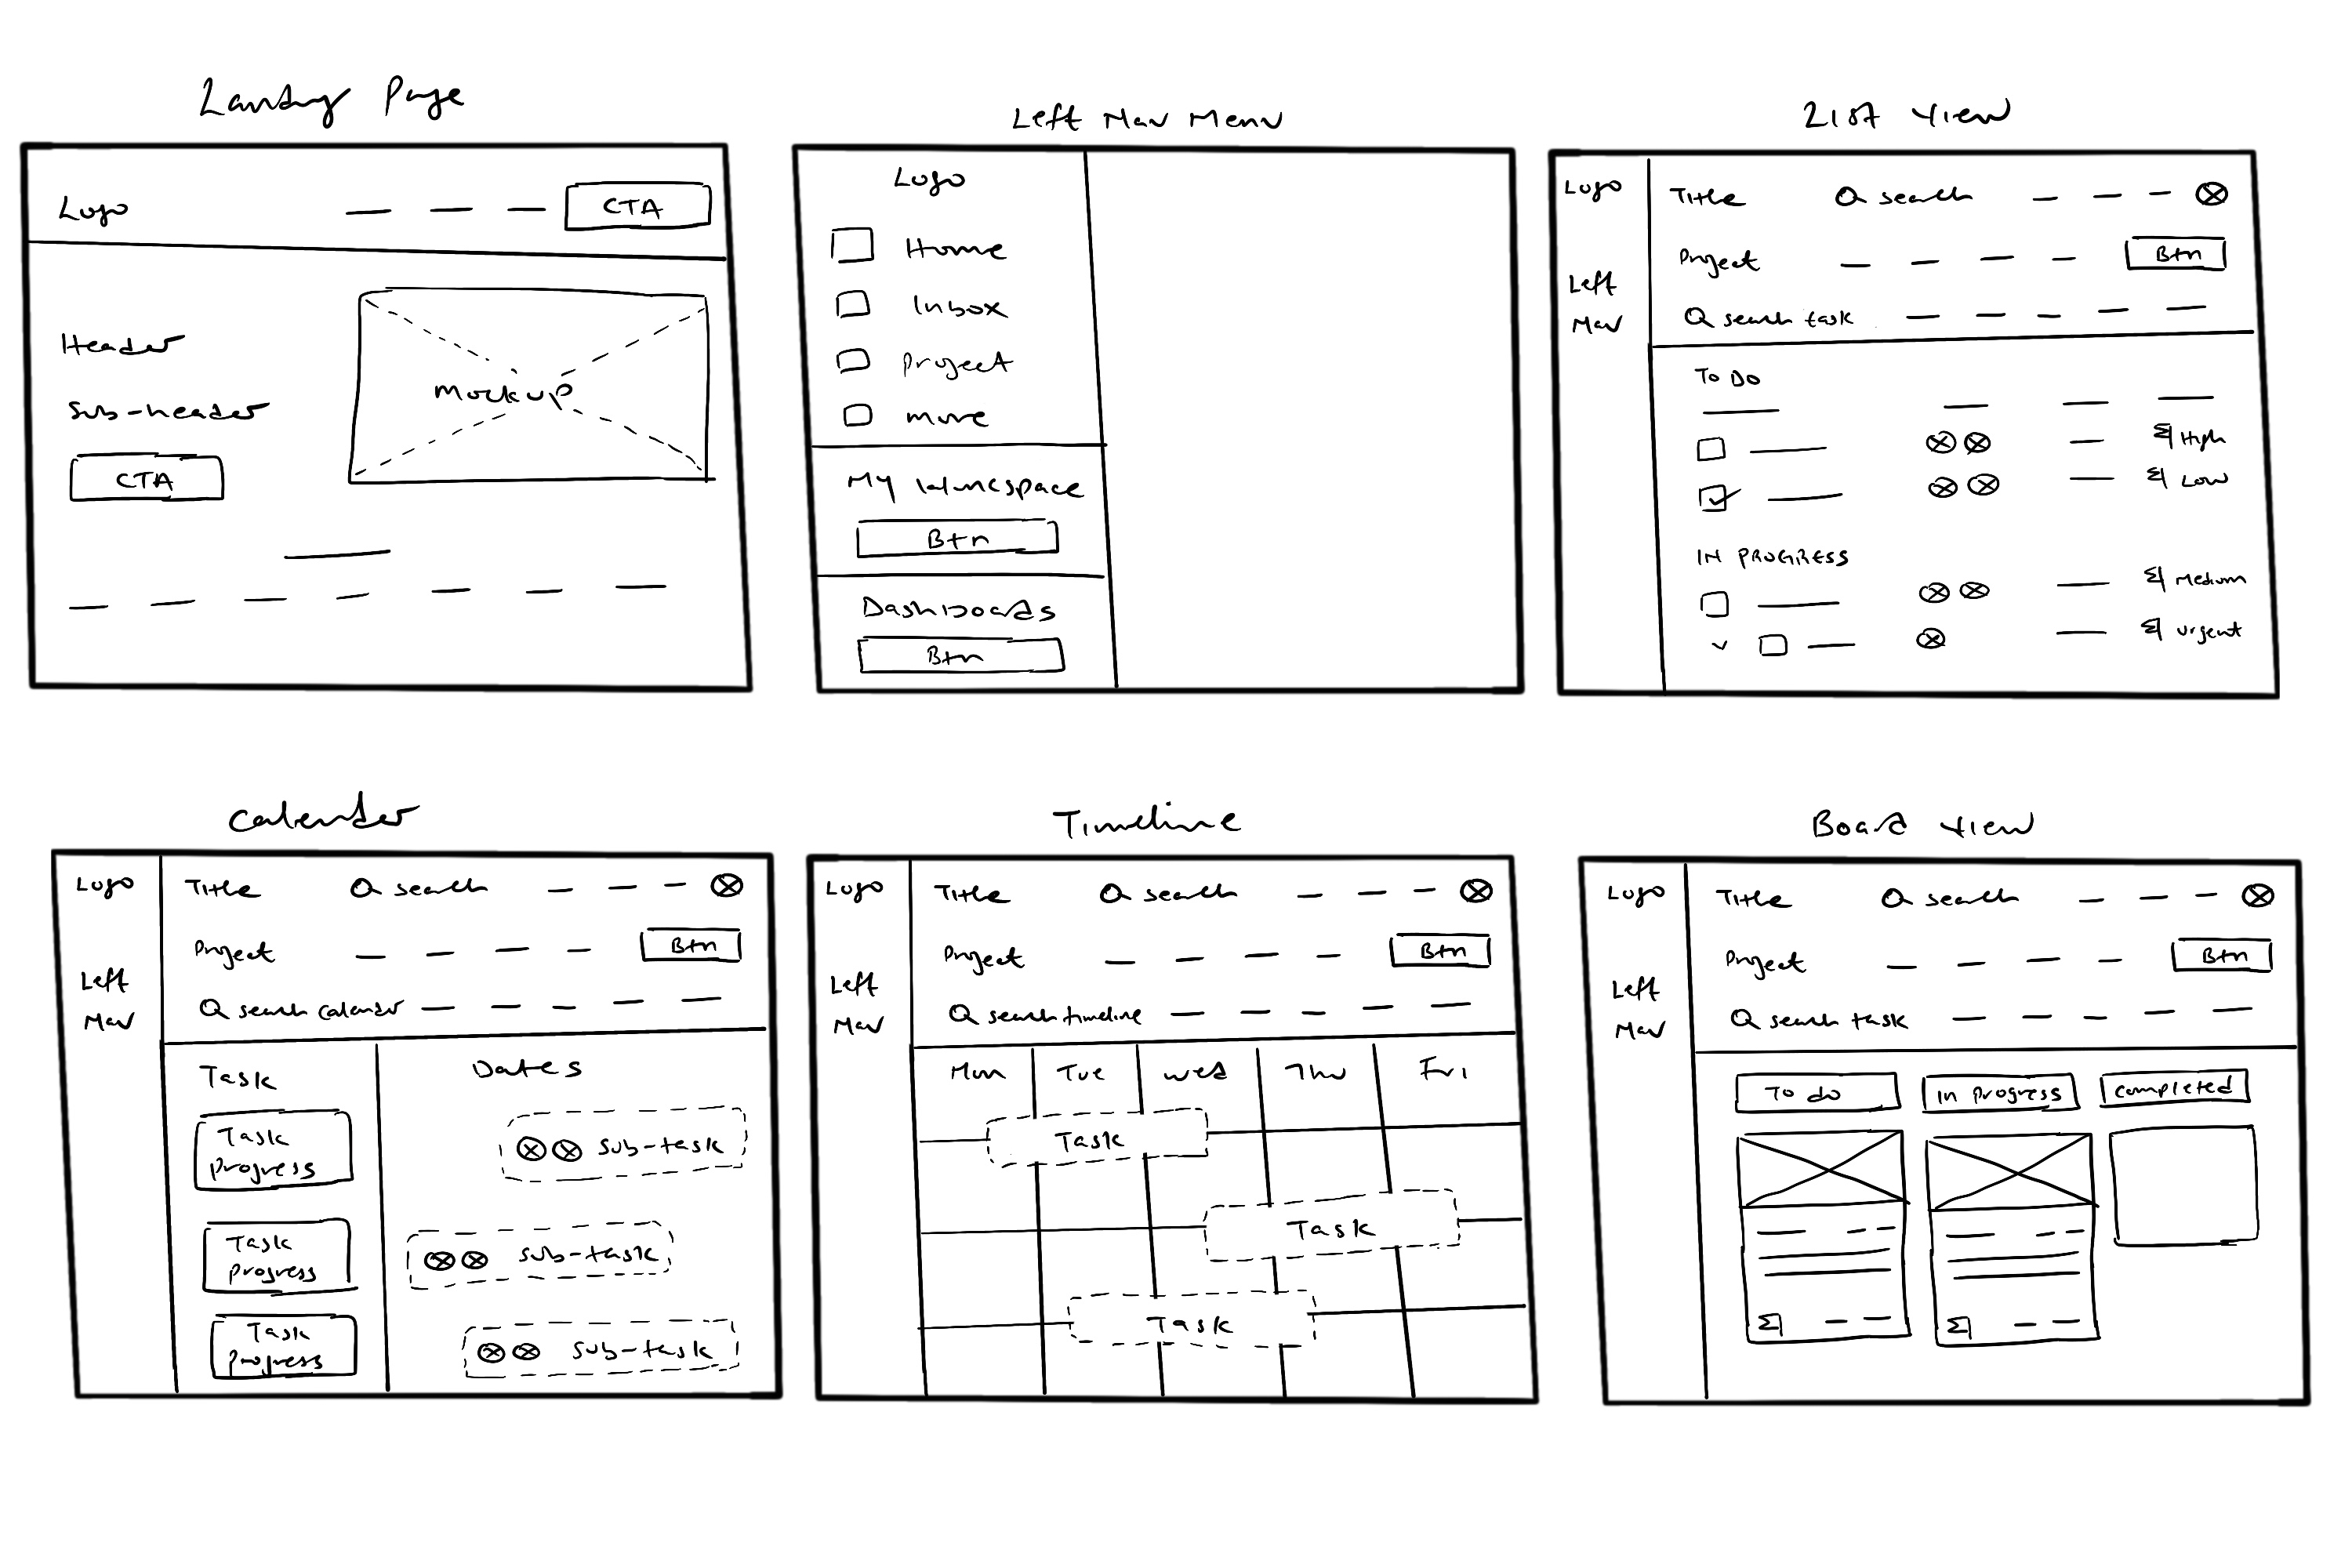 Landing Page
Logo
CTA
Header
Sub-header
CTA
Mockup
Left Nav Menu
Logo
Home
Inbox
Project
more
My Workspace
Btn
Dashboards
Btn
List View
Logo
Left
Nav
Title
search
Project
Btn
search task
TO DO
High
Low
IN PROGRESS
Medium
Urgent
Calender
Logo
Left
Nav
Title
search
Project
Btn
search calender
Task
Dates
Task
progress
sub-task
Task
progress
sub-task
Task
progress
sub-task
Timeline
Logo
Left
Nav
Title
search
Project
Btn
search timeline
Mon Tue Wed Thu Fri
Task
Task
Task
Board View
Logo
Left
Nav
Title
search
Project
Btn
search task
To do
In Progress
Completed